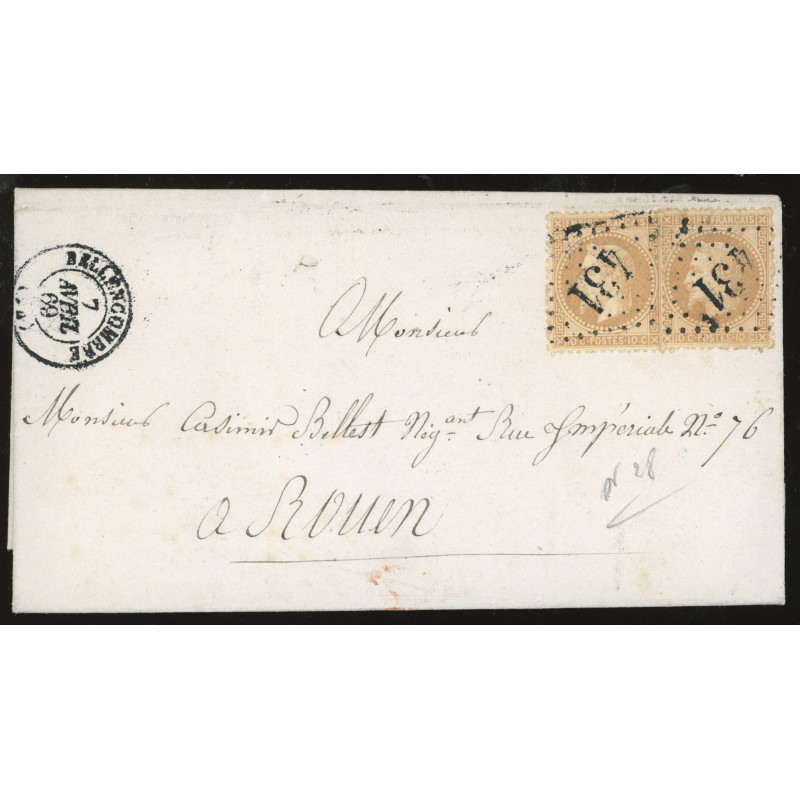 BELLENCOMBRE
7
AVRIL
69
431
431
FRANÇAIS
10 C·POSTES·10 C
10 C·POSTES·10 C
Monsieur
Monsieur Casimir Bellest Nég.ant Rue Impériale No. 76
a Rouen
28